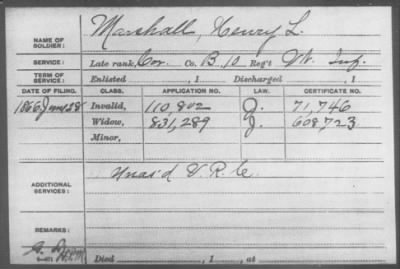 NAME OF SOLDIER: Marshall, Henry L.
SERVICE: Late rank, Cor. Co. B, 10 Reg't Vt. Inf.
TERM OF SERVICE: Enlisted , 1 Discharged , 1
DATE OF FILING. CLASS. APPLICATION NO. LAW. CERTIFICATE NO.
1866, June 28 Invalid, 110,802 J. 71,746
Widow, 831,289 J. 608,723
Minor,
ADDITIONAL SERVICES: Unas'd V. R. C.
REMARKS:
Died , 1 , at